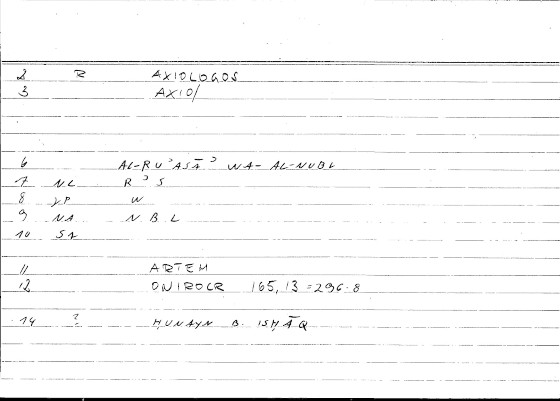 2 R AXIOLOGOS
3 AXIO/
6 AL-RUʾASĀʾ WA-AL-NUBL
7 NL RʾS
8 XP W
9 NA NBL
10 SA
11 ARTEM
12 ONIROCR 165,13=296.8
14 ? ḤUNAYN B. ISḤĀQ